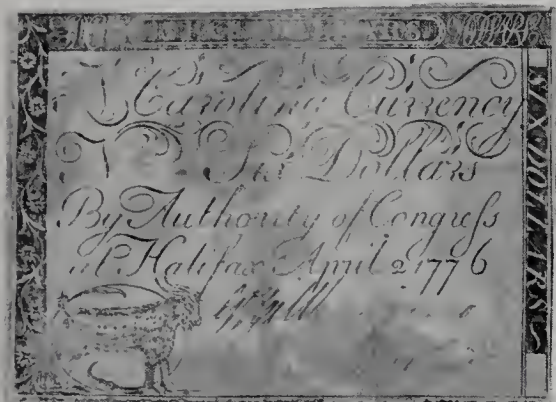 Carolina Currency
Six Dollars
By Authority of Congreſs
at Halifax April 2 1776
SIX DOLLARS